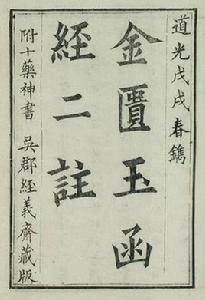 道光戊戌春鐫
金匱玉函
經二註
附十藥神書 吳郡經義齋藏版